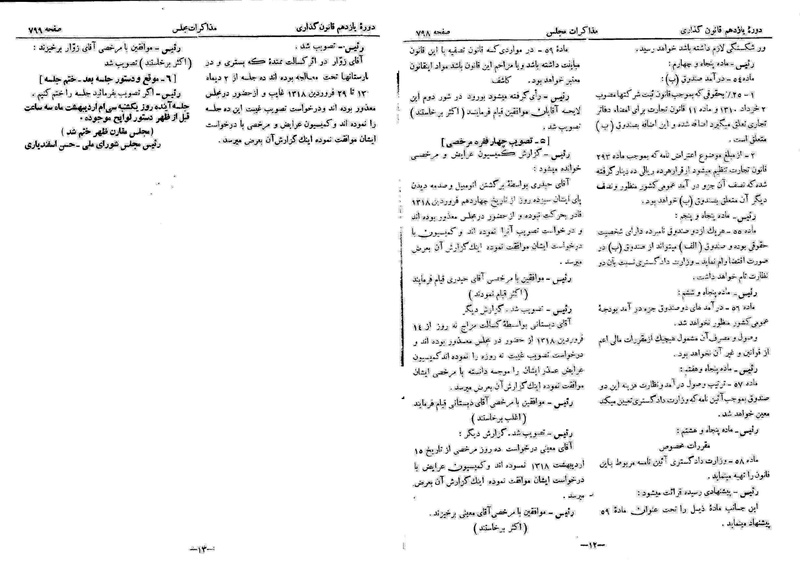 دورهٔ یازدهم قانون گذاری
مذاکرات مجلس
صفحه ۷۹۸
ور شکستگی لازم داشته باشد خواهد رسید.
رئیس ـ ماده پنجاه و چهارم:
ماده ۵۴ ـ در آمد صندوق (ب):
۱ ـ ۲۵٪ از حقوقی که بموجب قانون ثبت شرکتها مصوب
۲ خرداد ۱۳۱۰ و ماده ۱۱ قانون تجارت برای امضاء دفاتر
تجاری تعلق میگیرد اضافه شده و این اضافه بصندوق (ب)
متعلق است.
۲ ـ از مبلغ موضوع اعتراض نامه که بموجب ماده ۲۹۳
قانون تجارت تنظیم میشود از قرار هزده ریالی ده دینار گرفته
شده که نصف آن جزو در آمد عمومی کشور منظور و نصف
دیگر آن متعلق بصندوق (ب) خواهد بود.
رئیس ـ ماده پنجاه و پنجم:
ماده ۵۵ ـ هریك از دو صندوق نامبرده دارای شخصیت
حقوقی بوده و صندوق (الف) میتواند از صندوق (ب) در
صورت اقتضا وام نماید ـ وزارت دادگستری نسبت بآن دو
نظارت تام خواهد داشت.
رئیس ـ ماده پنجاه و ششم:
ماده ۵۶ ـ در آمد های دو صندوق جزء در آمد بودجهٔ
عمومی کشور منظور نخواهد شد.
وصول و مصرف آن مشمول هیچیك از مقررات مالی اعم
از قوانین و غیر آن نخواهد بود.
رئیس ـ ماده پنجاه و هفتم:
ماده ۵۷ ـ ترتیب وصول درآمد و نظارت هزینه این دو
صندوق بموجب آئین نامه که وزارت دادگستری تعیین میکند
معین خواهد شد.
رئیس ـ ماده پنجاه و هشتم:
مقررات مخصوص
ماده ۵۸ ـ وزارت دادگستری آئین نامه مربوط باین
قانون را تهیه مینماید.
رئیس ـ پیشنهادی رسیده قرائت میشود:
این جانب مادهٔ ذیل را تحت عنوان مادهٔ ۵۹
پیشنهاد مینماید.
ماده ۵۹ ـ در مواردی که قانون تصفیه با این قانون
مباینت داشته باشد و یا مزاحم این قانون باشد مواد این قانون
معتبر خواهد بود. کاشف
رئیس ـ رأی گرفته میشود بورود در شور دوم این
لایحه آقایان موافقین قیام فرمایند (اکثر برخاستند)
تصویب شد.
[۵ ـ تصویب چهار فقره مرخصی]
رئیس ـ گزارش کمیسیون عرایض و مرخصی
خوانده میشود:
آقای حیدری بواسطهٔ برگشتن اتومبیل و صدمه دیدن
پای ایشان سیزده روز از تاریخ چهاردهم فروردین ۱۳۱۸
قادر بحرکت نبوده و از حضور در مجلس معذور بوده اند
و درخواست تصویب آنرا نموده اند و کمیسیون با
درخواست ایشان موافقت نموده اینك گزارش آن بعرض
میرسد.
رئیس ـ موافقین با مرخصی آقای حیدری قیام فرمایند
(اکثر قیام نمودند)
رئیس ـ تصویب شد. گزارش دیگر
آقای دبستانی بواسطهٔ کسالت مزاج نه روز از ۱۴
فروردین ۱۳۱۸ از حضور در مجلس معذور بوده اند و
درخواست تصویب غیبت نه روزه را نموده اند کمیسیون
عرایض عذر ایشان را موجه دانسته با مرخصی ایشان
موافقت نموده اینك گزارش آن بعرض میرسد.
رئیس ـ موافقین با مرخصی آقای دبستانی قیام فرمایند
(اغلب برخاستند)
رئیس ـ تصویب شد. گزارش دیگر:
آقای معینی درخواست ده روز مرخصی از تاریخ ۱۵
اردیبهشت ۱۳۱۸ نموده اند و کمیسیون عرایض با
درخواست ایشان موافقت نموده اینك گزارش آن بعرض
میرسد.
رئیس ـ موافقین با مرخصی آقای معینی برخیزند.
(اکثر برخاستند)
ـ۱۲ـ
دورهٔ یازدهم قانون گذاری
مذاکرات مجلس
صفحه ۷۹۹
رئیس ـ تصویب شد.
آقای زوّار در اثر کسالت ممتدهٔ که بستری و در
بیمارستانها تحت معالجه بوده اند ده جلسه از ۲ دیماه
۱۳۱۷ تا ۲۹ فروردین ۱۳۱۸ غایب و از حضور در مجلس
معذور بوده اند و درخواست تصویب غیبت این ده جلسه
را نموده اند و کمیسیون عرایض و مرخصی با درخواست
ایشان موافقت نموده اینك گزارش آن بعرض میرسد.
رئیس ـ موافقین با مرخصی آقای زوّار برخیزند
(اکثر برخاستند) تصویب شد
[۶ ـ موقع و دستور جلسه بعد ـ ختم جلسه]
رئیس ـ اگر تصویب بفرمائید جلسه را ختم کنیم.
جلسه آینده روز یکشنبه سی ام اردیبهشت ماه سه ساعت
قبل از ظهر دستور لوایح موجوده.
(مجلس مقارن ظهر ختم شد)
رئیس مجلس شورای ملی ـ حسن اسفندیاری
ـ۱۳ـ